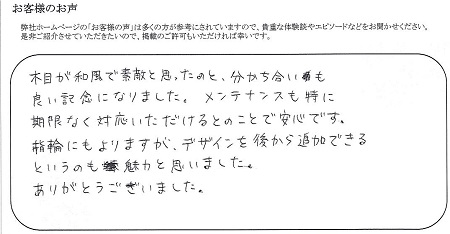 お客様のお声
弊社ホームページの「お客様の声」は多くの方が参考にされていますので、貴重な体験談やエピソードなどをお聞かせください。
是非ご紹介させていただきたいので、掲載のご許可もいただければ幸いです。
木目が和風で素敵と思ったのと、分かち合いも
良い記念になりました。メンテナンスも特に
期限なく対応いただけるとのことで安心です。
指輪にもよりますが、デザインを後から追加できる
というのも魅力と思いました。
ありがとうございました。